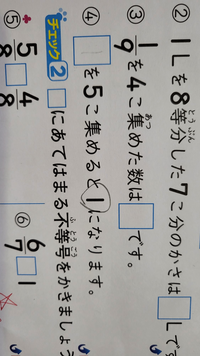 ② 1Lを8等分した7こ分のかさは□Lです
とうぶん
③ 1/9を4こ集めた数は□です。
あつ
④ □を5こ集めると1になります。
チェック2 □にあてはまる不等号をかきましょう
ふとうごう
⑤ 5/8□4/8
⑥ 6/7□1